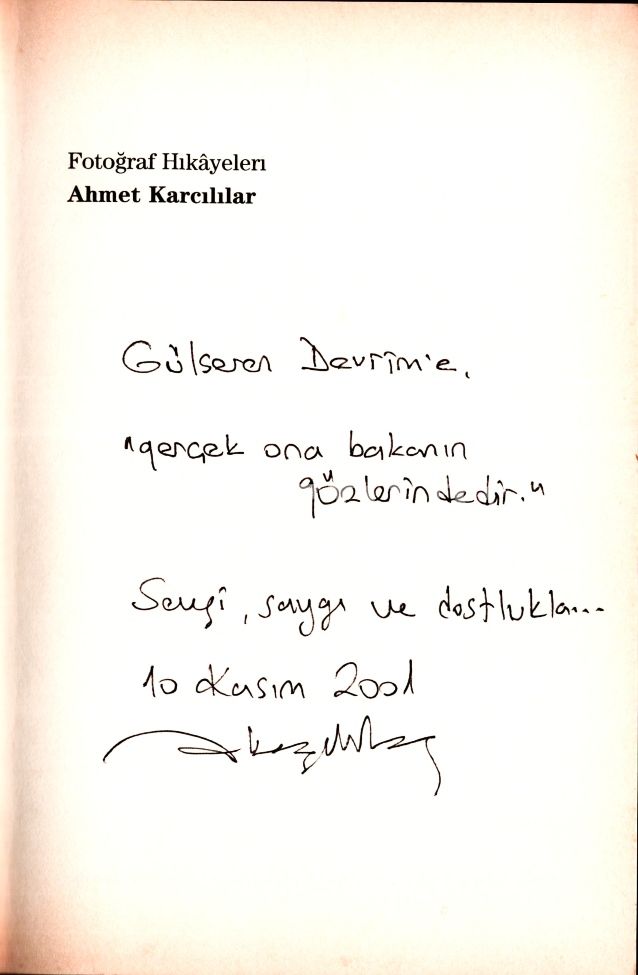 Fotoğraf Hıkâyelerı
Ahmet Karcılılar
Gülseren Devrim'e,
"gerçek ona bakanın
gözlerindedir."
Sevgi, saygı ve dostlukla...
10 Kasım 2001